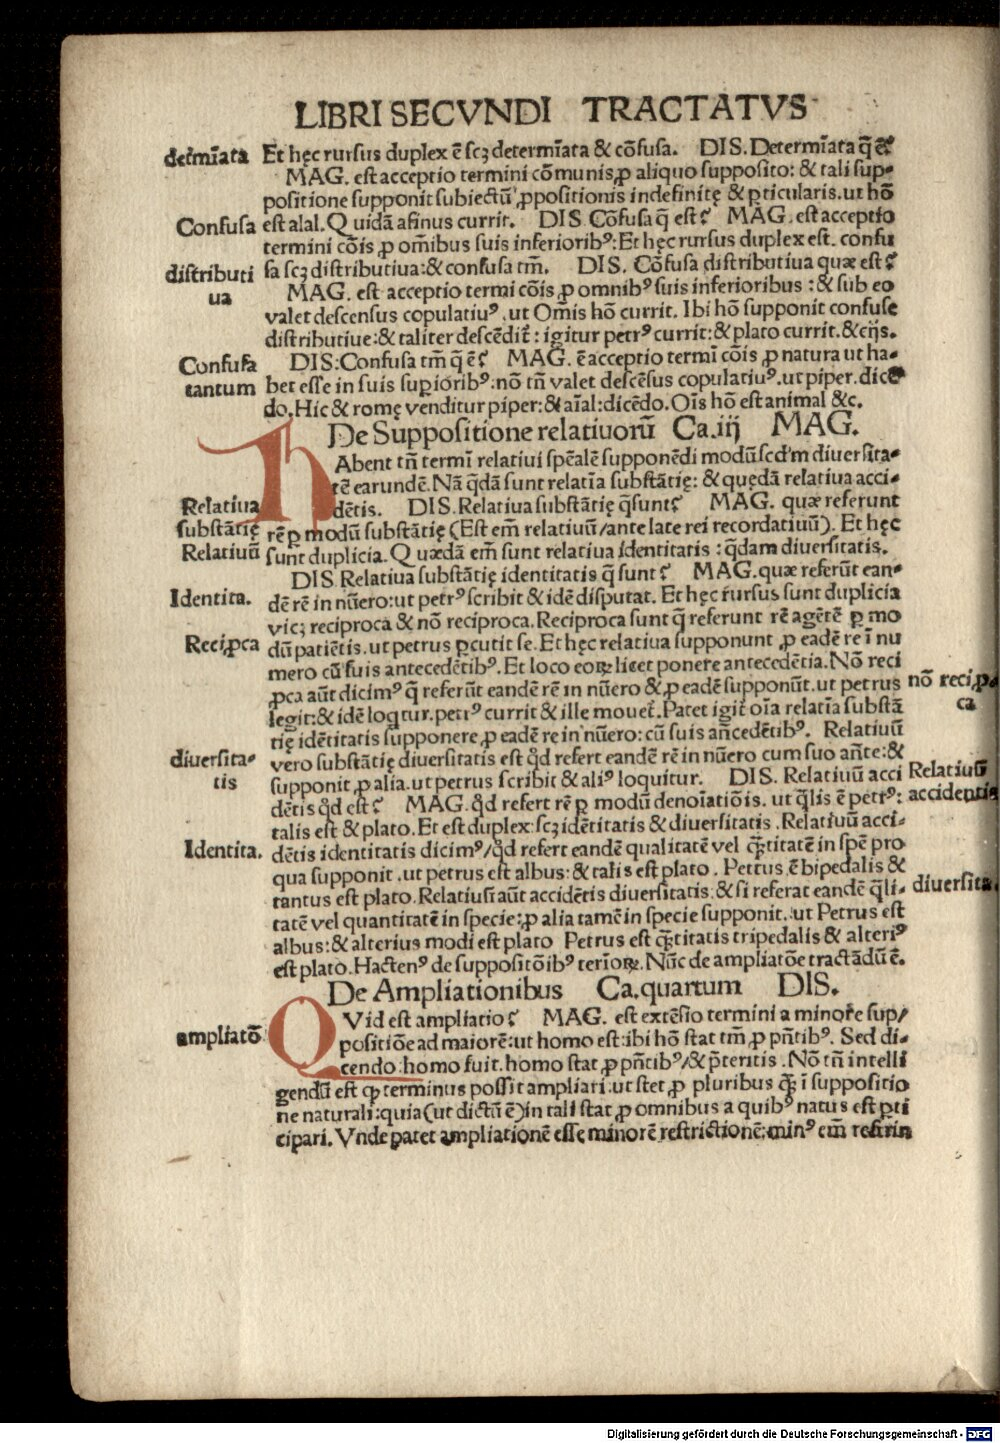 LIBRI SECVNDI TRACTATVS
determīata
Et hęc rursus duplex ē scꝫ determīata & cōfusa. DIS. Determīata q̄ ē?
MAG. est acceptio termini cōmunis ꝓ aliquo supposito: & tali sup-
positione supponit subiectū ꝓpositionis indefinitę & ꝑticularis. ut hō
Confusa
est alal. Quidā asinus currit. DIS. Cōfusa q̄ est? MAG. est acceptio
termini cōis ꝓ om̄ibus suis inferioribꝰ: Et hęc rursus duplex est. confu
distributi
sa scꝫ distributiua: & confusa tm̄. DIS. Cōfusa distributiua quæ est?
ua
MAG. est acceptio termi cōis ꝓ omnibꝰ suis inferioribus: & sub eo
valet descensus copulatiuꝰ. ut Om̄is hō currit. Ibi hō supponit confuse
distributiue: & taliter descēdit̄: igitur petrꝰ currit: & plato currit. & cijs.
Confusa
DIS: Confusa tm̄ q̄ ē? MAG. ē acceptio termī cōis ꝓ natura ut ha-
tantum
bet esse in suis superioribꝰ: nō tn̄ valet descēsus copulatiuꝰ. ut piper. dicē
do. Hic & romę venditur piper: & aīal: dicēdo. Oīs hō est animal &c.
De Suppositione relatiuorū Ca. iij MAG.
HAbent tn̄ termī relatiui spēalē supponēdi modū scd'm diuersita-
tē earundē. Nā q̄dā sunt relatīa substātię: & quędā relatiua acci-
Relatiua
dētis. DIS. Relatiua substātię q̄ sunt? MAG. quæ referunt
substātię
rē ꝑ modū substātię (Est em̄ relatiuū/ante late rei recordatiuū). Et hęc
Relatiuū
sunt duplicia. Quædā em̄ sunt relatiua identitatis: q̄dam diuersitatis.
DIS. Relatiua substātię identitatis q̄ sunt? MAG. quæ referūt ean-
Identita.
dē rē in nūero: ut petrꝰ scribit & idē disputat. Et hęc rursus sunt duplicia
vicꝫ reciproca & nō reciproca. Reciproca sunt q̄ referunt rē agētē ꝑ mo
Reciꝓca
dū patiētis. ut petrus ꝑcutit se. Et hęc relatiua supponunt ꝓ eadē re ī nu
mero cū suis antecedētibꝰ. Et loco eoꝝ licet ponere antecedētia. Nō reci
ꝓca aūt dicimꝰ q̄ referūt eandē rē in nūero & ꝓ eadē supponūt. ut petrus
nō reciꝓ
legit: & idē loq̄tur. petrꝰ currit & ille mouet̄. Patet igit̄ oīa relatīa substā
ca
tię idētitatis supponere ꝓ eadē re in nūero: cū suis an̄cedētibꝰ. Relatiuū
diuersita-
vero substātię diuersitatis est qd̄ refert eandē rē in nūero cum suo an̄te: &
tis
supponit ꝓ alia. ut petrus scribit & aliꝰ loquitur. DIS. Relatiuū acci
Relatiuū
dētis qd̄ est? MAG. qd̄ refert rē ꝑ modū denoīatiōis. ut q̄lis ē petrꝰ:
accidentis
talis est & plato. Et est duplex: scꝫ idētitatis & diuersitatis. Relatiuū acci-
Identita.
dētis identitatis dicimꝰ/qd̄ refert eandē qualitatē vel q̄titatē in spē pro
qua supponit. ut petrus est albus: & talis est plato. Petrus ē bipedalis &
tantus est plato. Relatiuū aūt accidētis diuersitatis: & si referat eandē q̄li-
diuersita.
tatē vel quantitatē in specie: ꝓ alia tamē in specie supponit. ut Petrus est
albus: & alterius modi est plato Petrus est q̄titatis tripedalis & alteriꝰ
est plato. Hactenꝰ de suppositōibꝰ terīoꝝ. Nūc de ampliatōe tractādū ē.
De Ampliationibus Ca. quartum DIS.
QVid est ampliatio? MAG. est extēsio termini a minore sup/
ampliatō
positiōe ad maiorē: ut homo est: ibi hō stat tm̄ ꝓ pn̄tibꝰ. Sed di-
cendo: homo fuit. homo stat ꝓ pn̄tibꝰ/& p̄teritis. Nō tn̄ intelli
gendū est ꝙ terminus possit ampliari. ut stet ꝓ pluribus q̄ ī suppositio
ne naturali: quia (ut dictū ē) in tali stat ꝓ omnibus a quibꝰ natus est ꝑti
cipari. Vnde patet ampliationē esse minorē restrictionē: minꝰ em̄ restrin
Digitalisierung gefördert durch die Deutsche Forschungsgemeinschaft - DFG